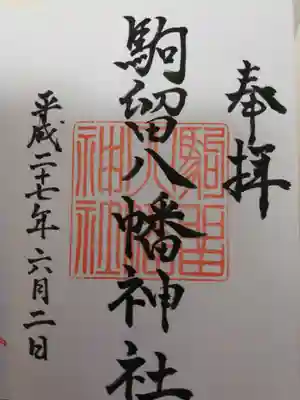 奉拝
駒留八幡神社
駒留八幡神社
平成二十七年六月二日